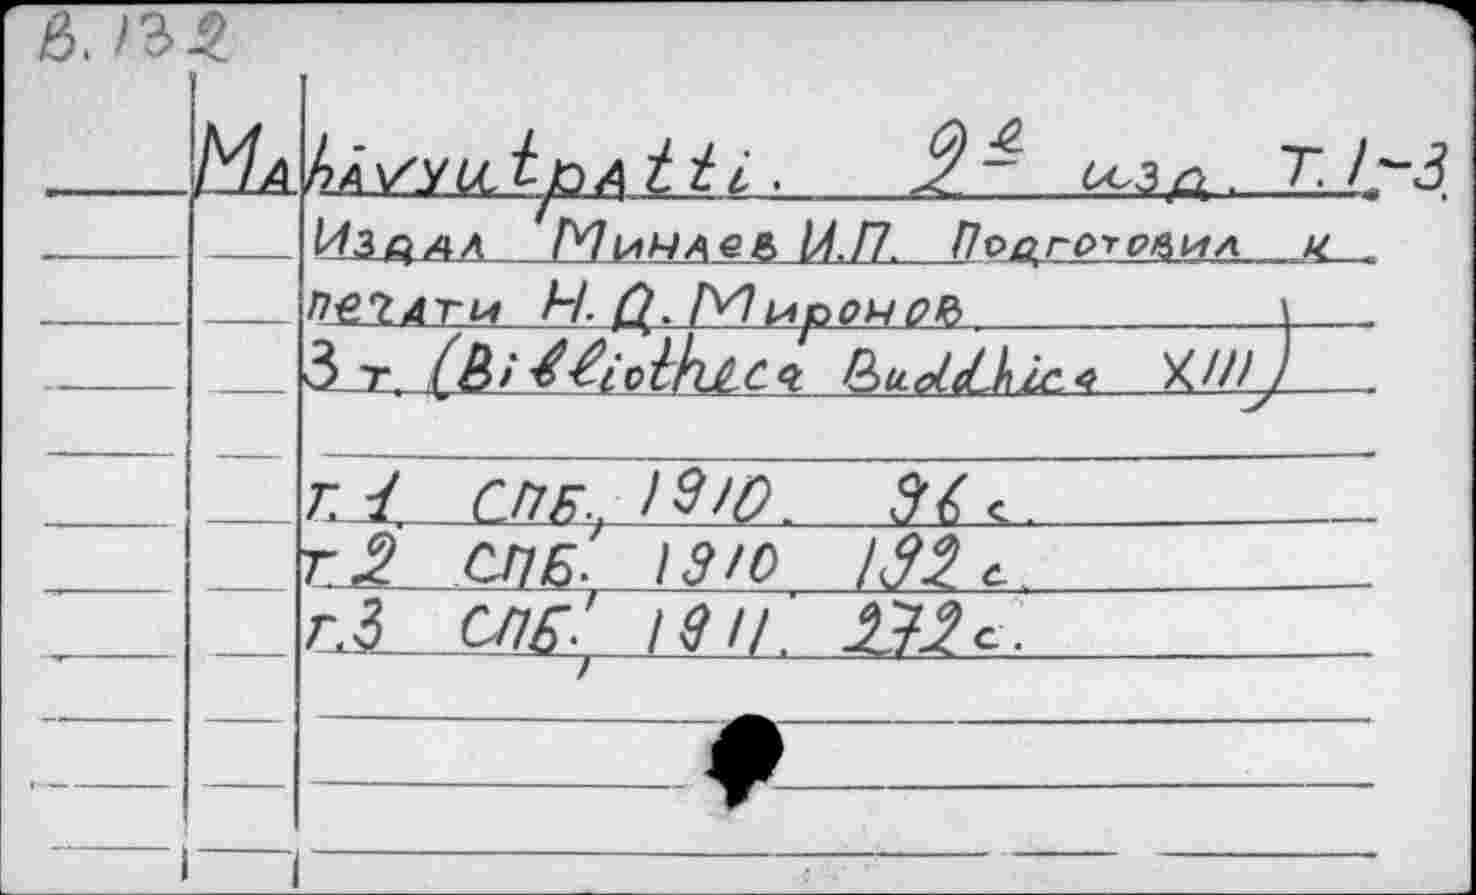 В.132
Mahāvyutpatti. 2-е изд. Т.1-3.
Издал Минаев И.П. Подготовил к
печати Н.Д. Миронов.
3 т. (Bibliotheca Buddhica XIII)
т.1. СПБ., 1910. 96 с.
т.2 СПБ., 1910. 192 с.
т.3 СПБ., 1911. 272 с.